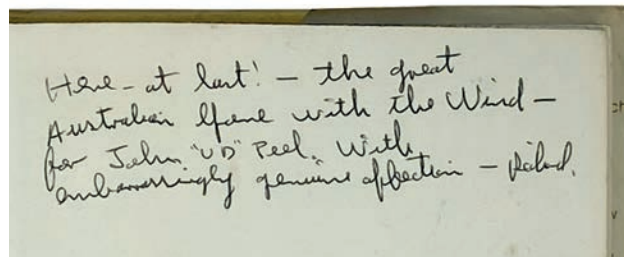 Here - at last! - the great
Australian Gone with the Wind -
for John "VD" Peel. With
embarrassingly genuine affection -